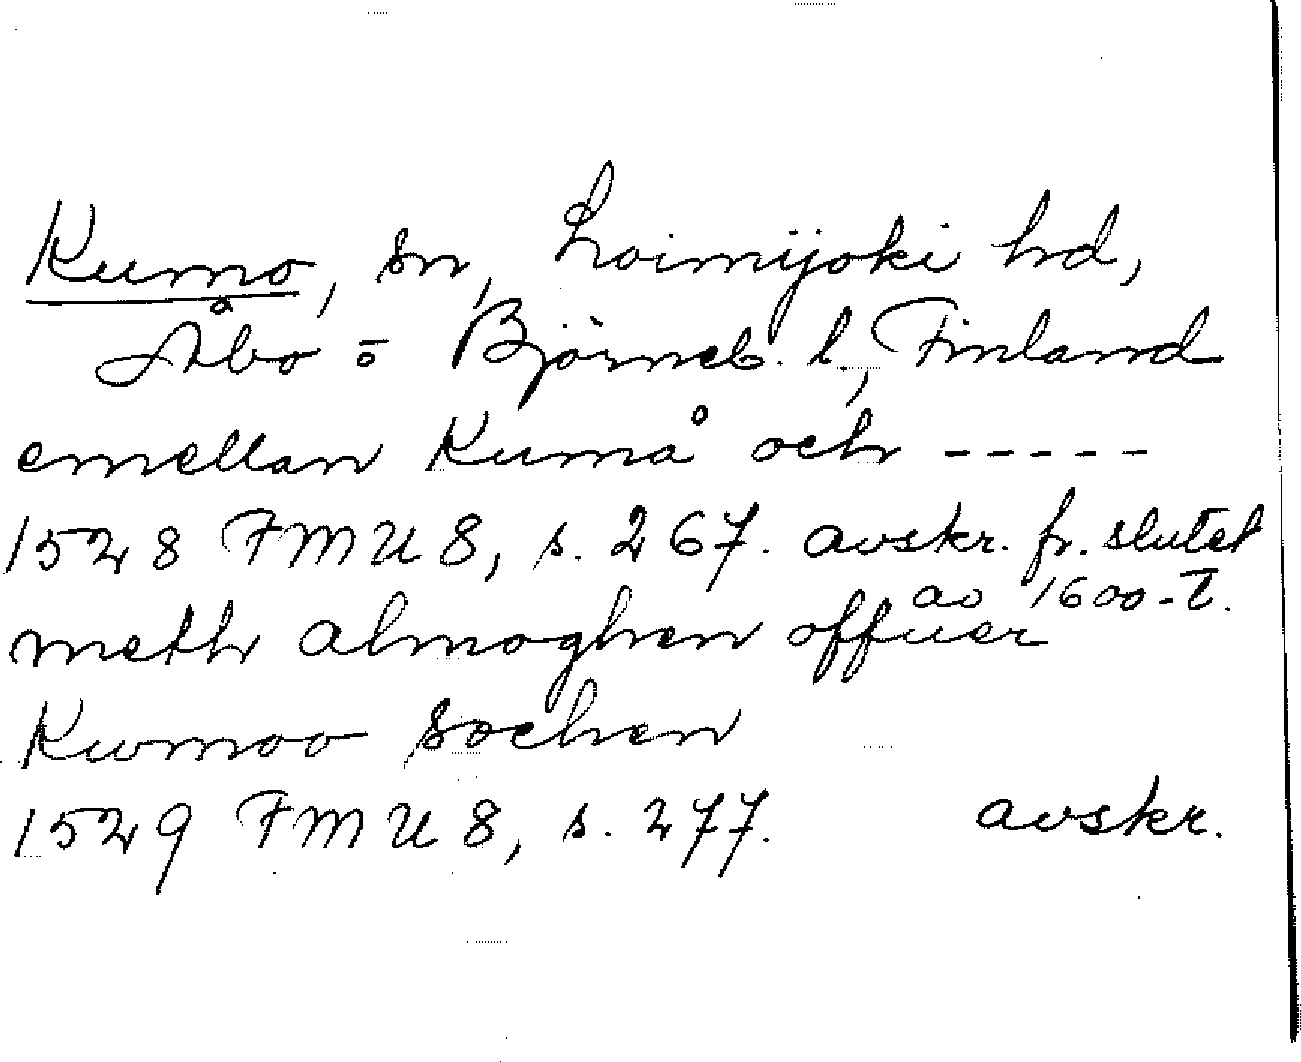 Kumo, sn, Loimijoki hd,
Åbo o Björneb. l, Finland
emellan Kumå och -----
1528 FMU 8, s. 267. avskr. fr. slutet
av 1600-t.
meth almoghen offuer
Kumoo sochen
1529 FMU 8, s. 277. avskr.